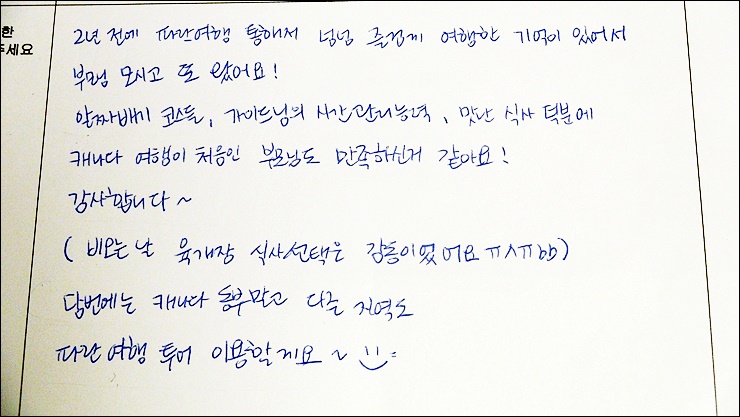 한
주세요
2년 전에 파란여행 통해서 넘넘 즐겁게 여행한 기억이 있어서
부모님 모시고 또 왔어요!
알짜배기 코스들, 가이드님의 시간관리능력, 맛난 식사 덕분에
캐나다 여행이 처음인 부모님도 만족하신거 같아요!
감사합니다~
(비오는날 육개장 식사선택은 감동이었어요 ㅠㅅㅠbb)
담번에는 캐나다 동부말고 다른 지역도
파란여행 투어 이용할게요~ :)